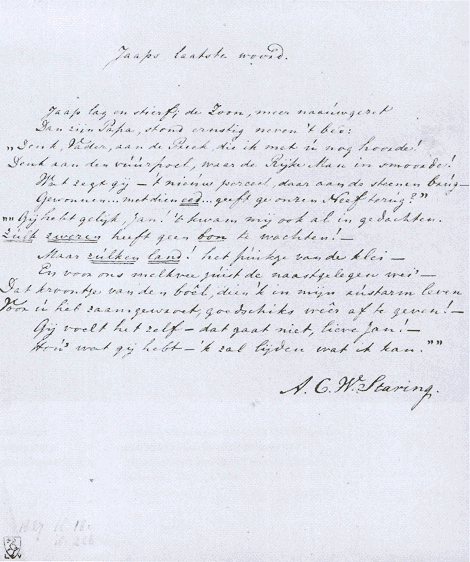 Jaaps laatste woord.
Jaap lag en stierf; de Zoon, meer naauwgezet
Dan zijn Papa, stond ernstig neven 't bed:
„Denk, Vader, aan de Preek, die ik met u nog hoorde!
Denk aan den vuurpoel, waar de Rijke Man in smoorde!
Wat zegt gij — 't nieuw perceel, daar aan de steenen brug —
Gewonnen... met dien eed... geeft ge onzen Neef terug?”
„„Gij hebt gelijk, Jan! 't kwam mij ook al in gedachten.
Zulk zweren heeft geen loon te wachten! —
Maar zulken land! het puikje van de klei —
En voor ons melkvee juist de naastgelegen wei' —
Dat kroontje van den boêl, dien 'k in mijn leven
Voor u heb zaamgewoest, goedschiks weêr af te geven! —
Gij voelt het zelf — dat gaat niet, lieve Jan! —
Hou' wat gij hebt — 'k zal lijden wat ik kan.””
A. C. W. Staring.